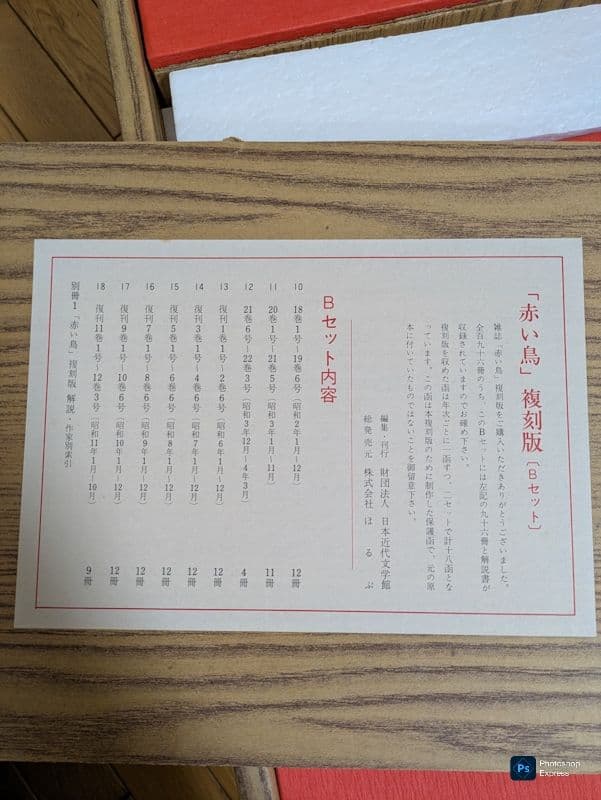 「赤い鳥」複刻版〔Bセット〕
雑誌「赤い鳥」複刻版をご購入いただきありがとうございました。
全百九十六冊のうち、このBセットには左記の九十六冊と解説書が
収録されていますのでお確め下さい。
複刻版を収めた函は年次ごとに一函ずつ、二セットで計十八函とな
っています。この函は本複刻版のために制作した保護函で、元の原
本に付いていたものではないことを御留意下さい。
編集・刊行 財団法人 日本近代文学館
総発売元 株式会社 ほるぷ
Bセット内容
10 18巻1号〜19巻6号(昭和2年1月〜12月) 12冊
11 20巻1号〜21巻5号(昭和3年1月〜11月) 11冊
12 21巻6号〜22巻3号(昭和3年12月〜4年3月) 4冊
13 復刊1巻1号〜2巻6号(昭和6年1月〜12月) 12冊
14 復刊3巻1号〜4巻6号(昭和7年1月〜12月) 12冊
15 復刊5巻1号〜6巻6号(昭和8年1月〜12月) 12冊
16 復刊7巻1号〜8巻6号(昭和9年1月〜12月) 12冊
17 復刊9巻1号〜10巻6号(昭和10年1月〜12月) 12冊
18 復刊11巻1号〜12巻3号(昭和11年1月〜10月) 9冊
別冊1「赤い鳥」複刻版 解説・作家別索引
Ps Photoshop Express